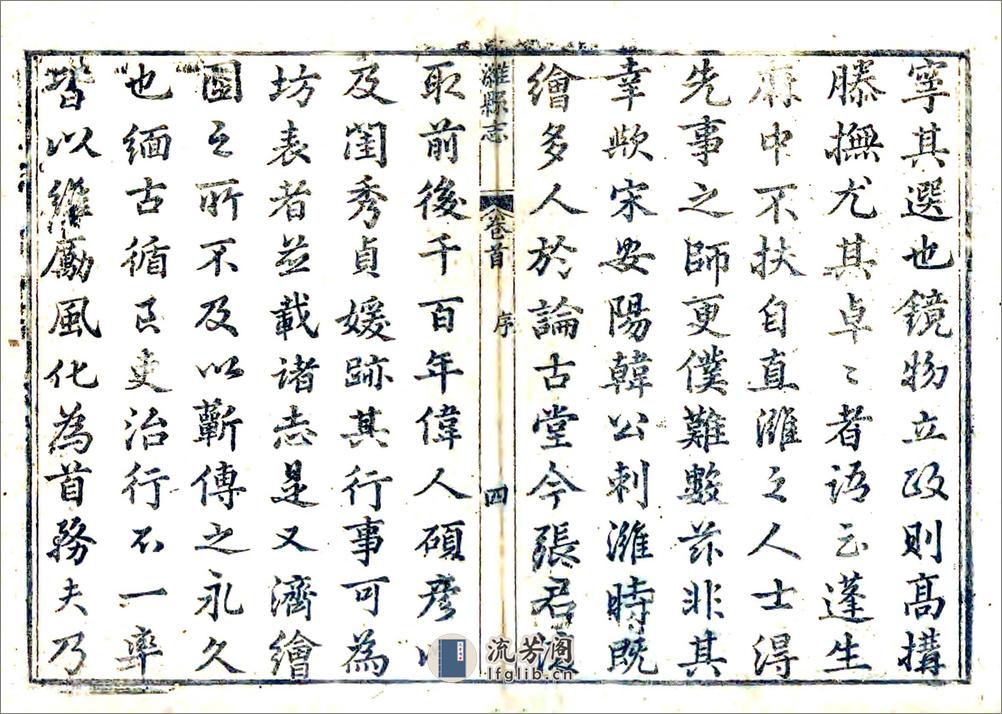 寧其選也鏡物立政則髙構
滕撫尤其卓〻者語云蓬生
麻中不扶自直濰之人士得
先事之師更僕難數茲非其
幸歟宋安陽韓公刺濰時既
繪多人於論古堂今張君
濰縣志 卷首 序 四
取前後千百年偉人碩彦
及閨秀貞媛跡其行事可為
坊表者並載諸志是又濟繪
圖之所不及以蘄傳之永久
也緬古循良吏治行不一率
皆以維勵風化為首務夫乃
流芳阁
lfglib.cn